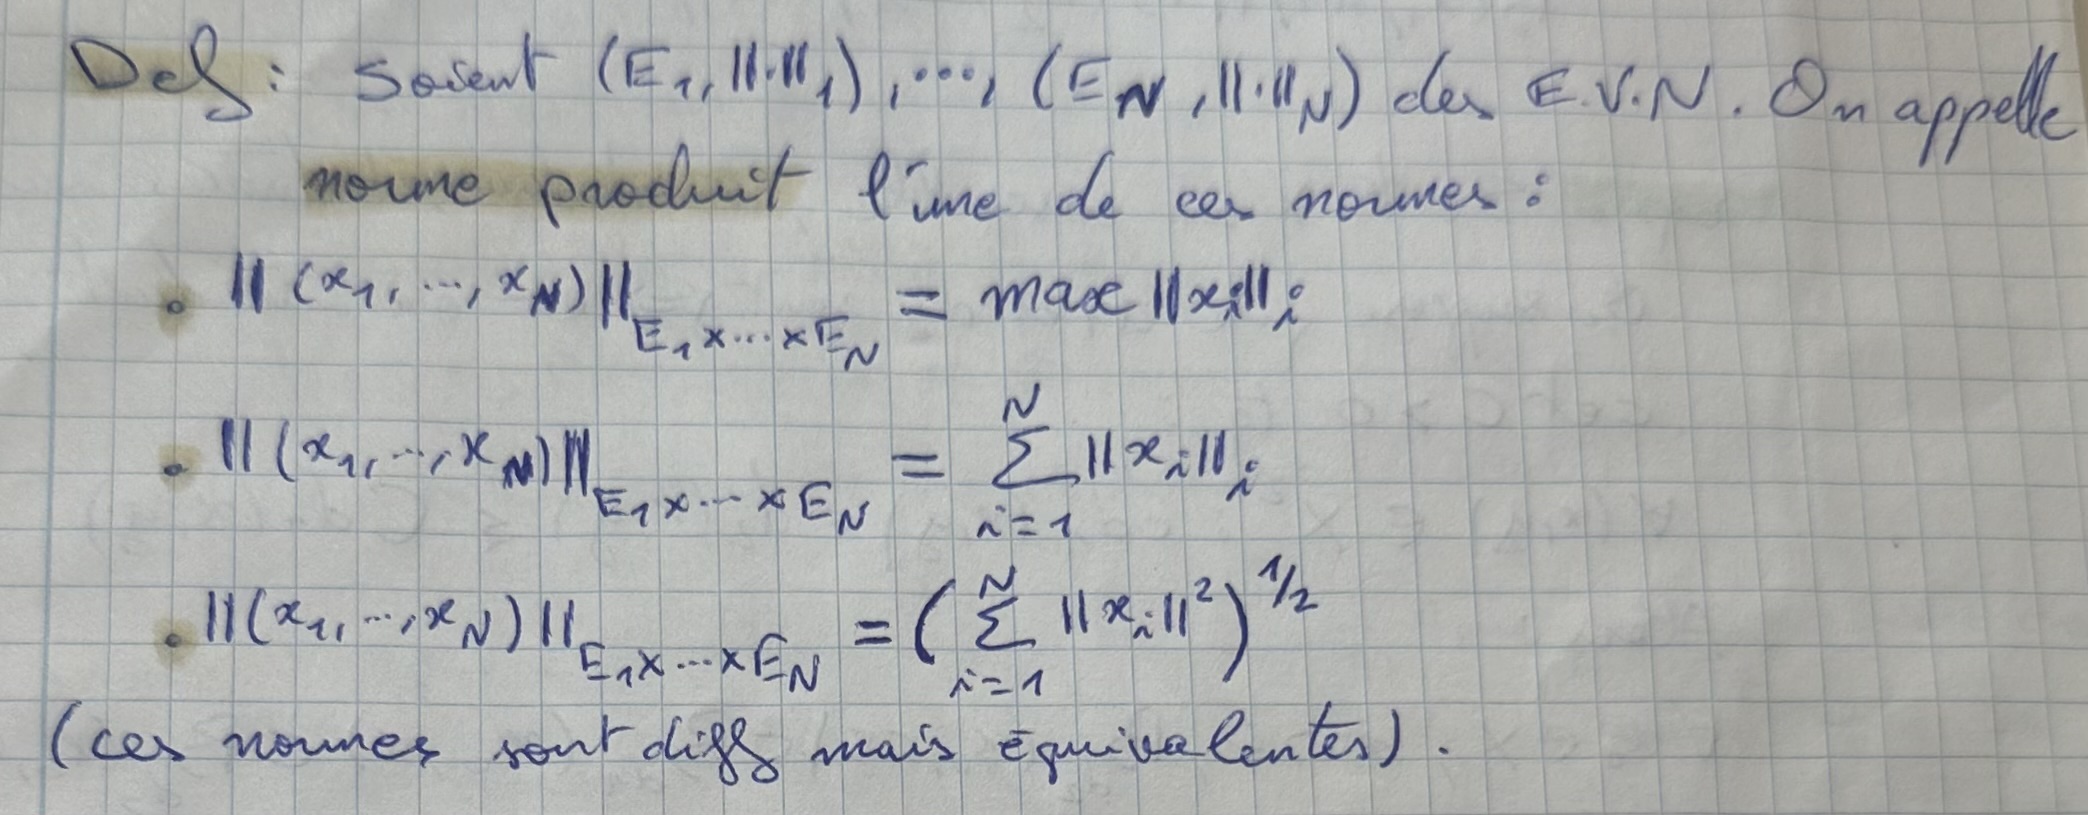 Def : Soient (E₁, ||·||₁), ..., (E_N, ||·||_N) des E.V.N. On appelle
norme produit l'une de ces normes :
• ||(x₁, ..., x_N)||_{E₁×...×E_N} = max ||x_i||_i
• ||(x₁, ..., x_N)||_{E₁×...×E_N} = ∑_{i=1}^{N} ||x_i||_i
• ||(x₁, ..., x_N)||_{E₁×...×E_N} = (∑_{i=1}^{N} ||x_i||²)^{1/2}
(ces normes sont diff mais équivalentes).